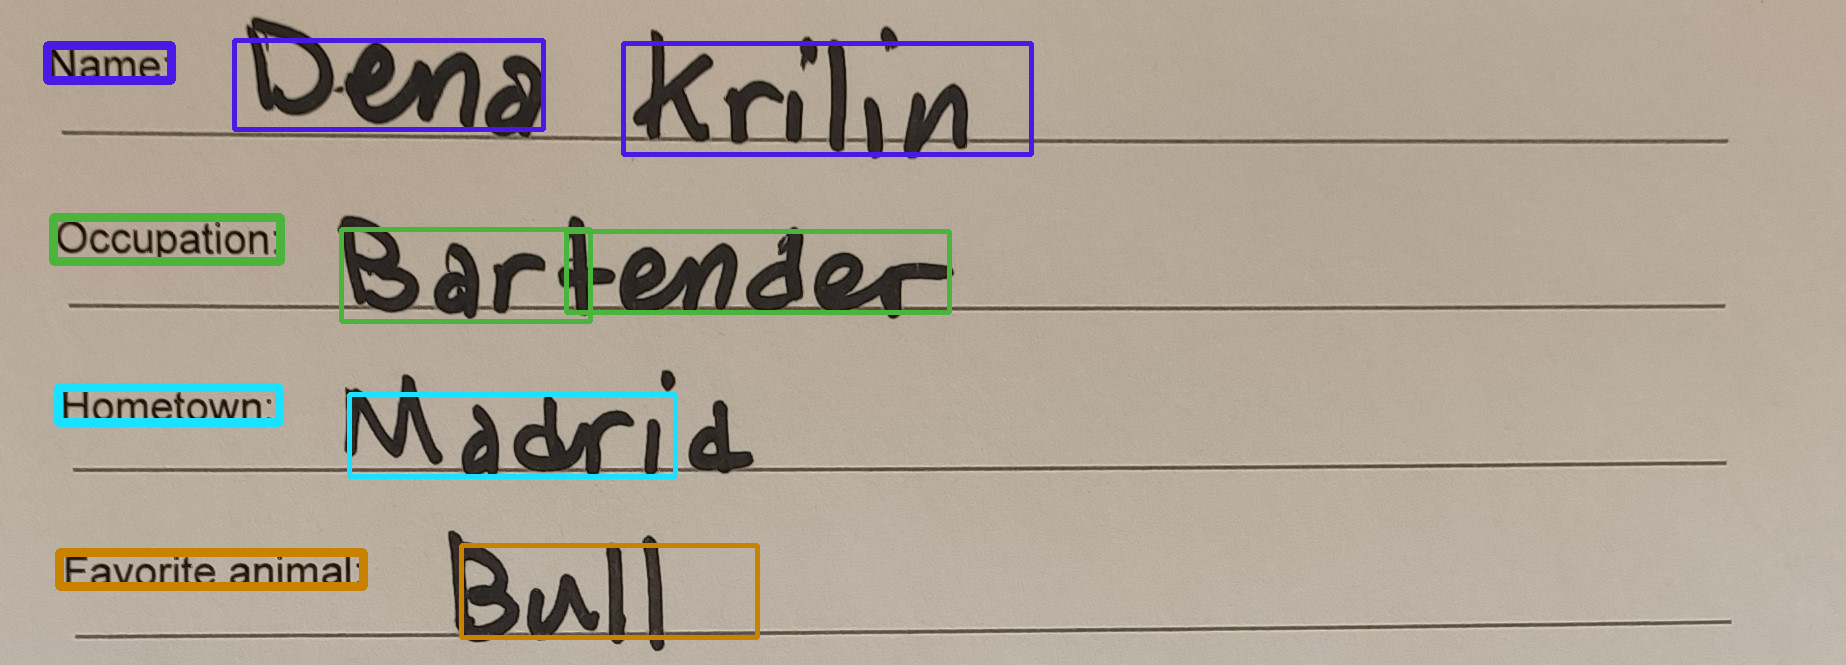 Name: Dena Krilin
Occupation: Bartender
Hometown: Madrid
Favorite animal: Bull